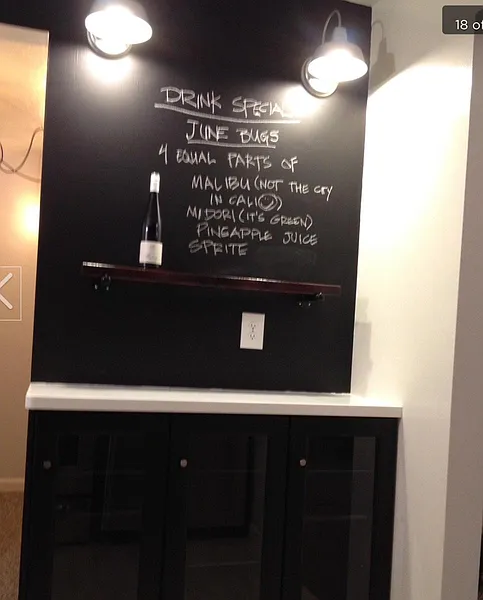 18 of
DRINK SPECIALS
JUNE BUGS
4 EQUAL PARTS OF
MALIBU (NOT THE CITY
IN CALI☺)
MIDORI (IT'S GREEN)
PINEAPPLE JUICE
SPRITE